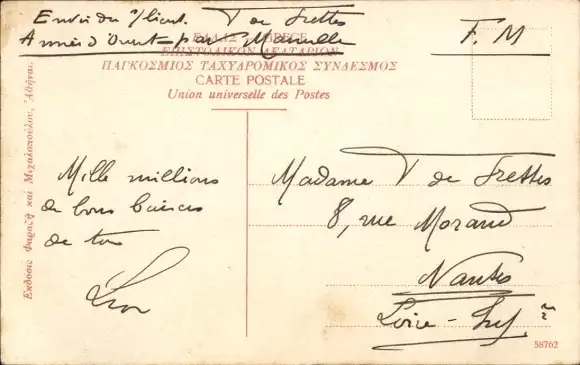 Envoi du s/lieut. V de Frettes
Armée d'Orient par Marseille
F. M
ΕΛΛΑΣ GRÈCE
ΕΠΙΣΤΟΛΙΚΟΝ ΔΕΛΤΑΡΙΟΝ
ΠΑΓΚΟΣΜΙΟΣ ΤΑΧΥΔΡΟΜΙΚΟΣ ΣΥΝΔΕΣΜΟΣ
CARTE POSTALE
Union universelle des Postes
Έκδοσις Φαραζή καί Μιχαλοπούλου, Ἀθῆναι.
Mille millions
de bons baisers
de ton
Léon
Madame V de Frettes
8, rue Morand
Nantes
Loire-Infʳᵉ
58762